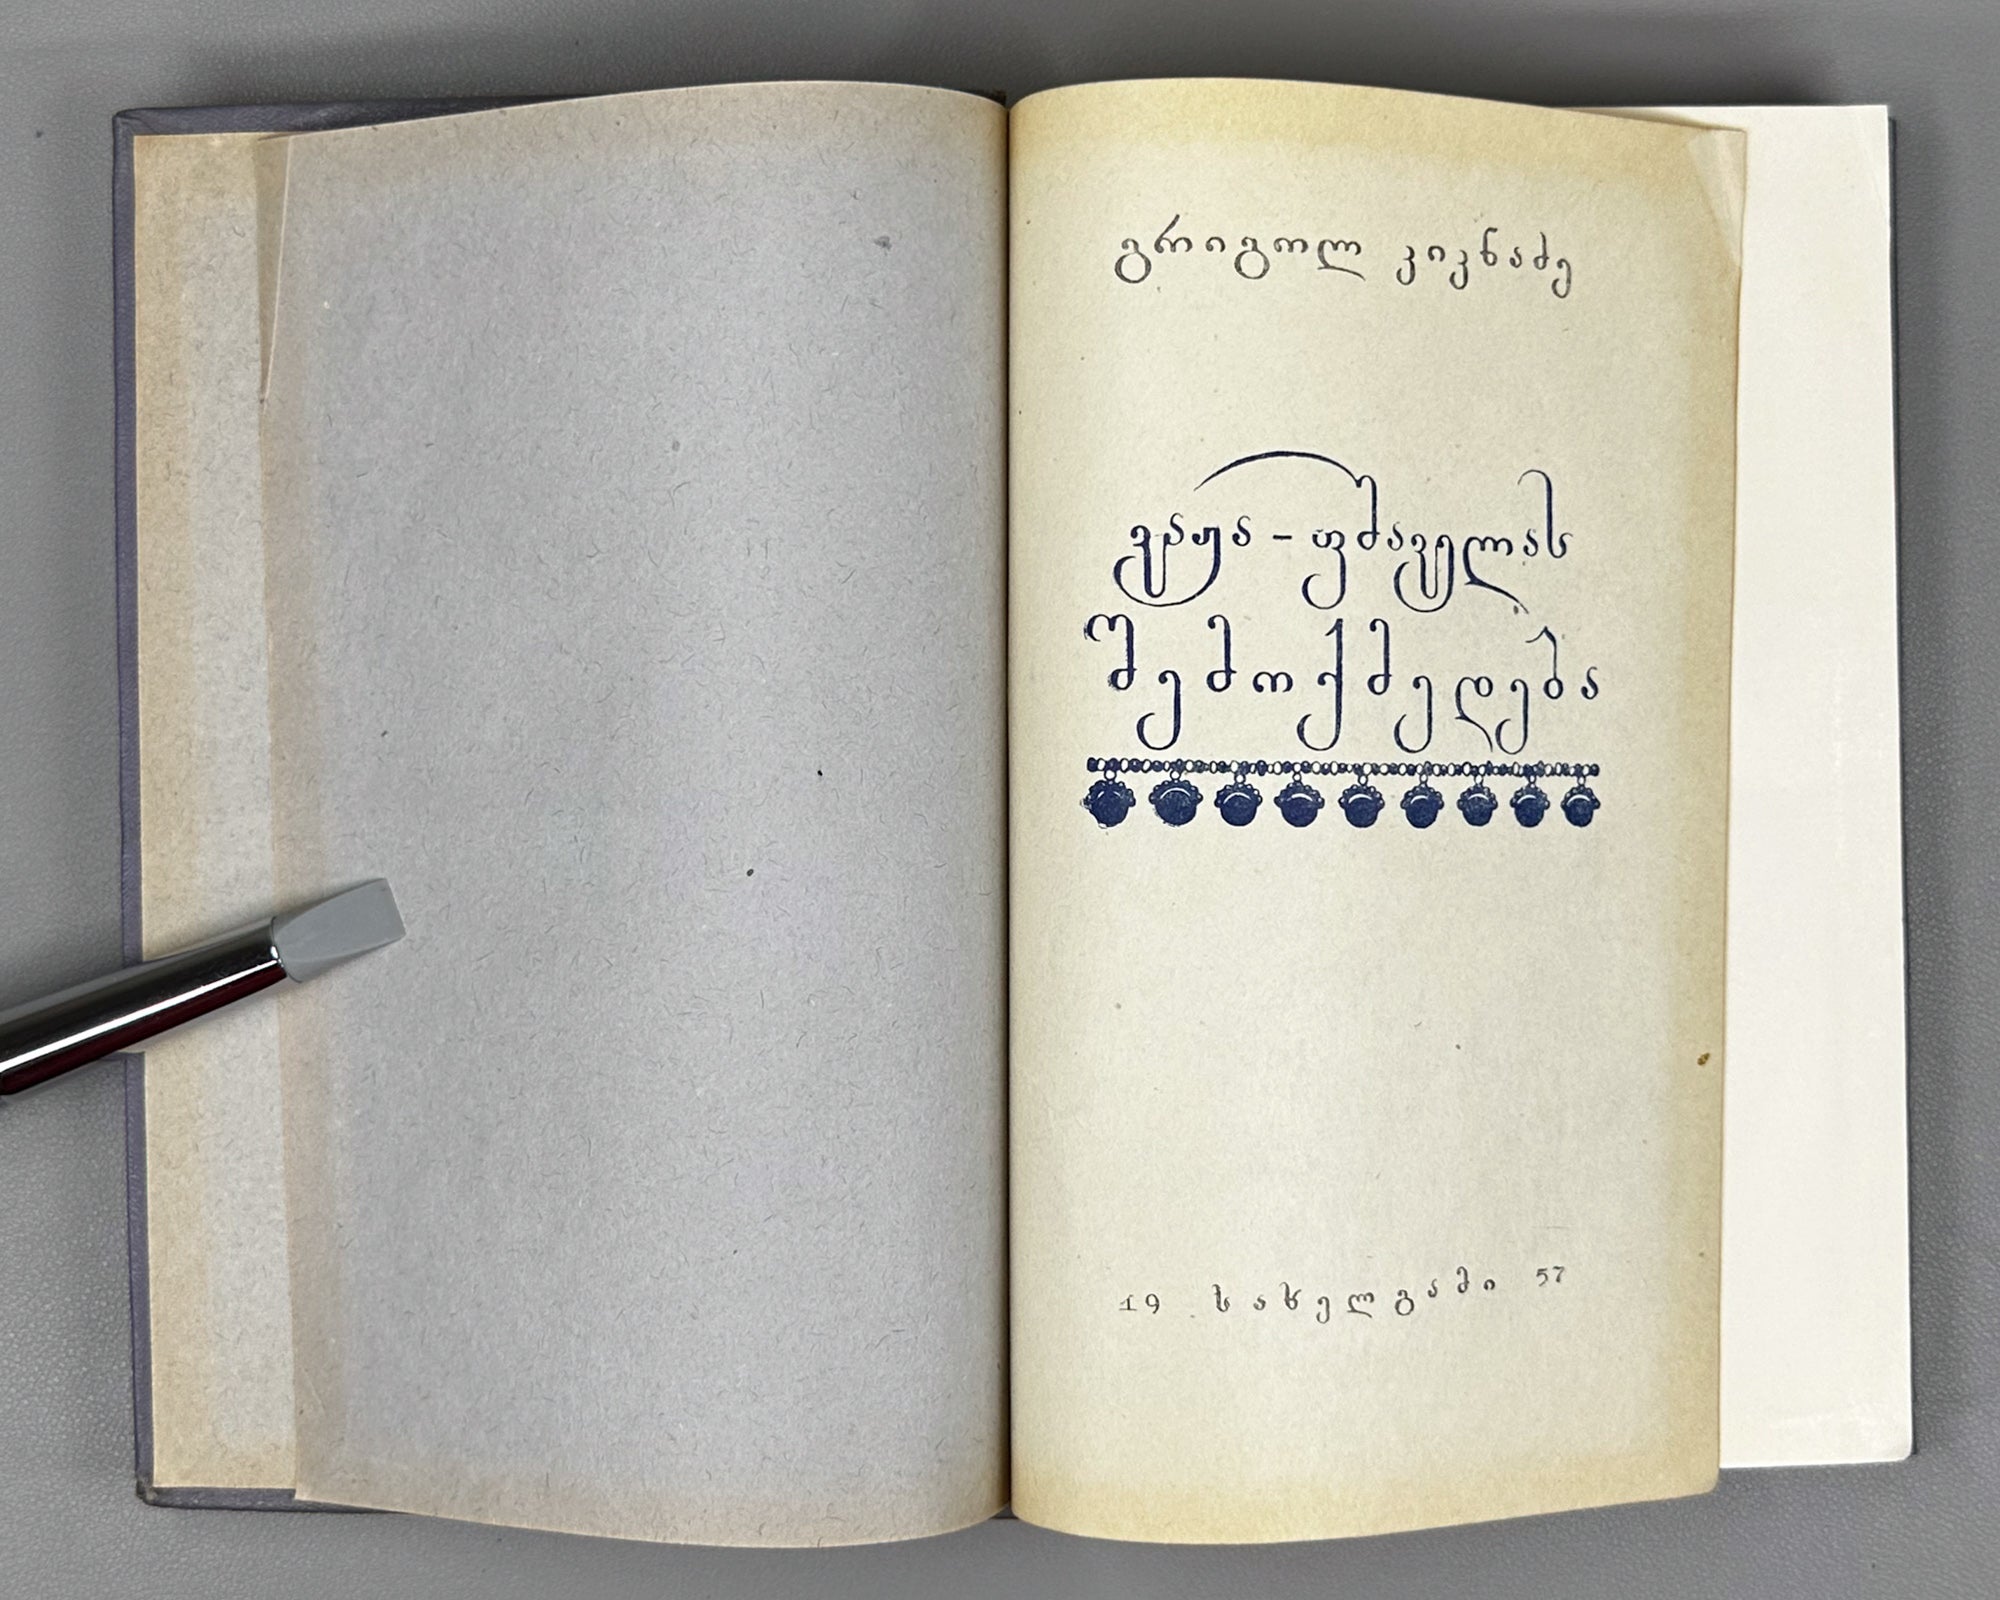 გრიგოლ კიკნაძე
ვაჟა-ფშაველას
შემოქმედება
19 სახელგამი 57